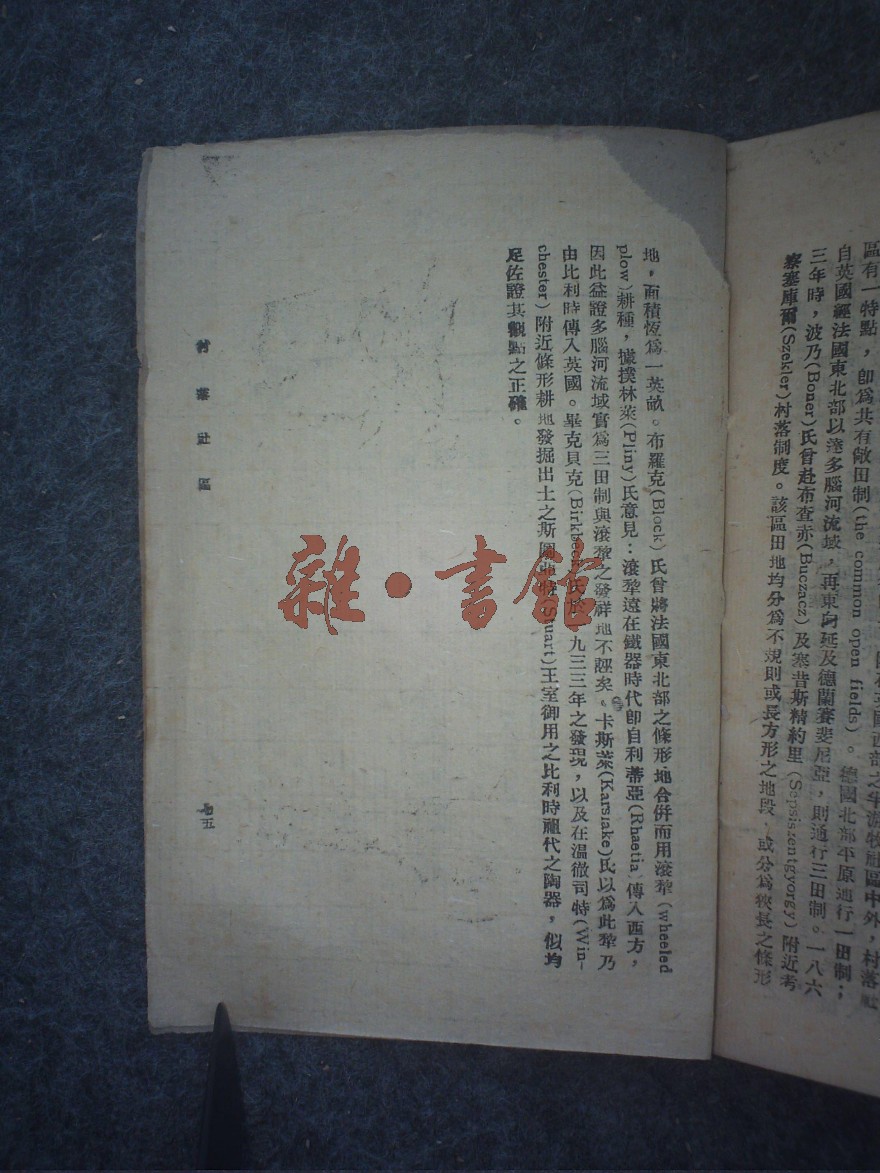 區有一特點，卽爲共有敞田制(the common open fields)。德國北部平原通行一田制；
自英國經法國東北部以達多腦河流域，再東向延及德蘭賽斐尼亞，則通行三田制。一八六
三年時，波乃(Boner)氏曾赴布查亦(Buczacz)及塞昔斯精約里(Sepsiszentgyorgy)附近考
察塞庫爾(Szekler)村落制度。該區田地均分爲不規則或長方形之地段，或分爲狹長之條形
地，面積恆爲一英畝。布羅克(Block)氏曾將法國東北部之條形地合併而用滾犂(wheeled
plow)耕種，據撲林萊(Pliny)氏意見：滾犂遠在鐵器時代卽自利蒂亞(Rhaetia)傳入西方，
因此益證多腦河流域實爲三田制與滾犂之發祥地不誣矣。卡斯萊(Karslake)氏以爲此犂乃
由比利時傳入英國。畢克貝克(Birkbec 氏於一九三三年之發現，以及在溫徹司特(Win-
chester)附近條形耕地發掘出土之斯圖 特(Stuart)王室御用之比利時祖代之陶器，似均
足佐證其觀點之正確。
村落社區
七五
雜·書館